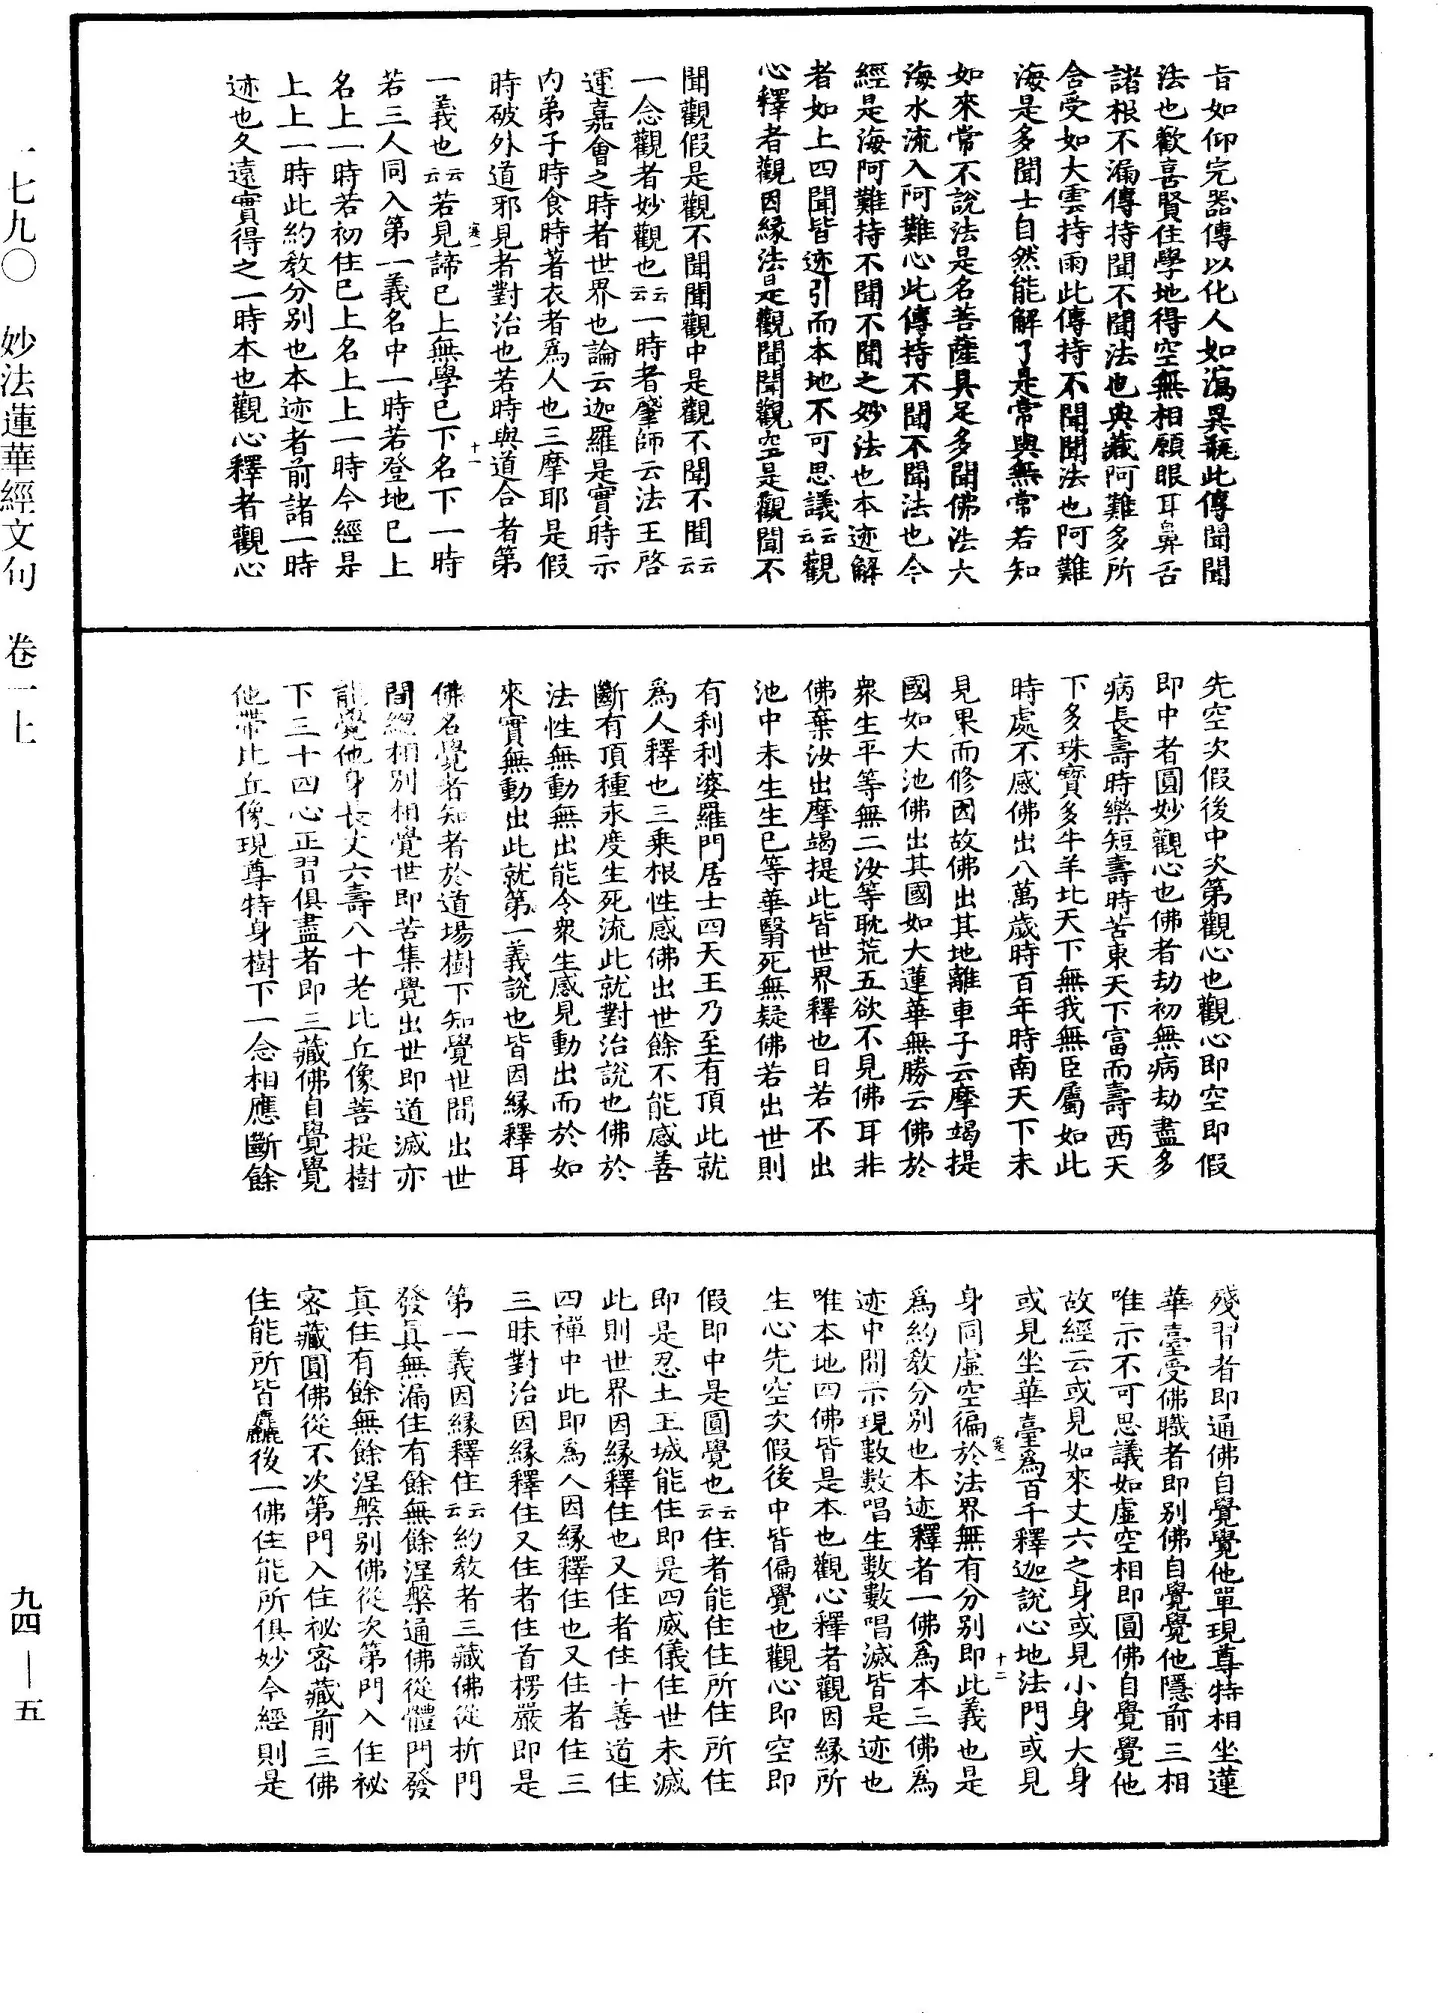 旨如仰完器傳以化人如瀉異瓶此傳聞聞
法也歡喜賢住學地得空無相願眼耳鼻舌
諸根不漏傳持聞不聞法也典藏阿難多所
含受如大雲持雨此傳持不聞聞法也阿難
海是多聞士自然能解了是常與無常若知
如來常不說法是名菩薩具足多聞佛法大
海水流入阿難心此傳持不聞不聞法也今
經是海阿難持不聞不聞之妙法也本迹解
者如上四聞皆迹引而本地不可思議云云觀
心釋者觀因緣法是觀聞聞觀空是觀聞不
聞觀假是觀不聞聞觀中是觀不聞不聞云云
一念觀者妙觀也云云一時者肇師云法王啓
運嘉會之時者世界也論云迦羅是實時示
內弟子時食時著衣者爲人也三摩耶是假
時破外道邪見者對治也若時與道合者第
一義也云云若見諦已上無學已下名下一時
若三人同入第一義名中一時若登地已上
名上一時若初住已上名上上一時今經是
上上一時此約教分別也本迹者前諸一時
迹也久遠實得之一時本也觀心釋者觀心
先空次假後中次第觀心也觀心即空即假
即中者圓妙觀心也佛者劫初無病劫盡多
病長壽時樂短壽時苦東天下富而壽西天
下多珠寶多牛羊北天下無我無臣屬如此
時處不感佛出八萬歲時百年時南天下未
見果而修因故佛出其地離車子云摩竭提
國如大池佛出其國如大蓮華無勝云佛於
衆生平等無二汝等耽荒五欲不見佛耳非
佛棄汝出摩竭提此皆世界釋也日若不出
池中未生生已等華翳死無疑佛若出世則
有剎利婆羅門居士四天王乃至有頂此就
爲人釋也三乘根性感佛出世餘不能感善
斷有頂種永度生死流此就對治說也佛於
法性無動無出能令衆生感見動出而於如
來實無動出此就第一義說也皆因緣釋耳
佛名覺者知者於道場樹下知覺世間出世
間總相別相覺世即苦集覺出世即道滅亦
能覺他身長丈六壽八十老比丘像菩提樹
下三十四心正習俱盡者即三藏佛自覺覺
他帶比丘像現尊特身樹下一念相應斷餘
殘習者即通佛自覺覺他單現尊特相坐蓮
華臺受佛職者即別佛自覺覺他隱前三相
唯示不可思議如虛空相即圓佛自覺覺他
故經云或見如來丈六之身或見小身大身
或見坐華臺爲百千釋迦說心地法門或見
身同虛空徧於法界無有分別即此義也是
爲約教分別也本迹釋者一佛爲本三佛爲
迹中間示現數數唱生數數唱滅皆是迹也
唯本地四佛皆是本也觀心釋者觀因緣所
生心先空次假後中皆偏覺也觀心即空即
假即中是圓覺也云云住者能住住所住所住
即是忍土王城能住即是四威儀住世未滅
此則世界因緣釋住也又住者住十善道住
四禪中此即爲人因緣釋住也又住者住三
三昧對治因緣釋住又住者住首楞嚴即是
第一義因緣釋住云云約教者三藏佛從析門
發真無漏住有餘無餘涅槃通佛從體門發
真住有餘無餘涅槃別佛從次第門入住祕
密藏圓佛從不次第門入住祕密藏前三佛
住能所皆麤後一佛住能所俱妙今經則是
寔一
十一
寔一
十二
一七九〇　妙法蓮華經文句　卷一上
九四—五